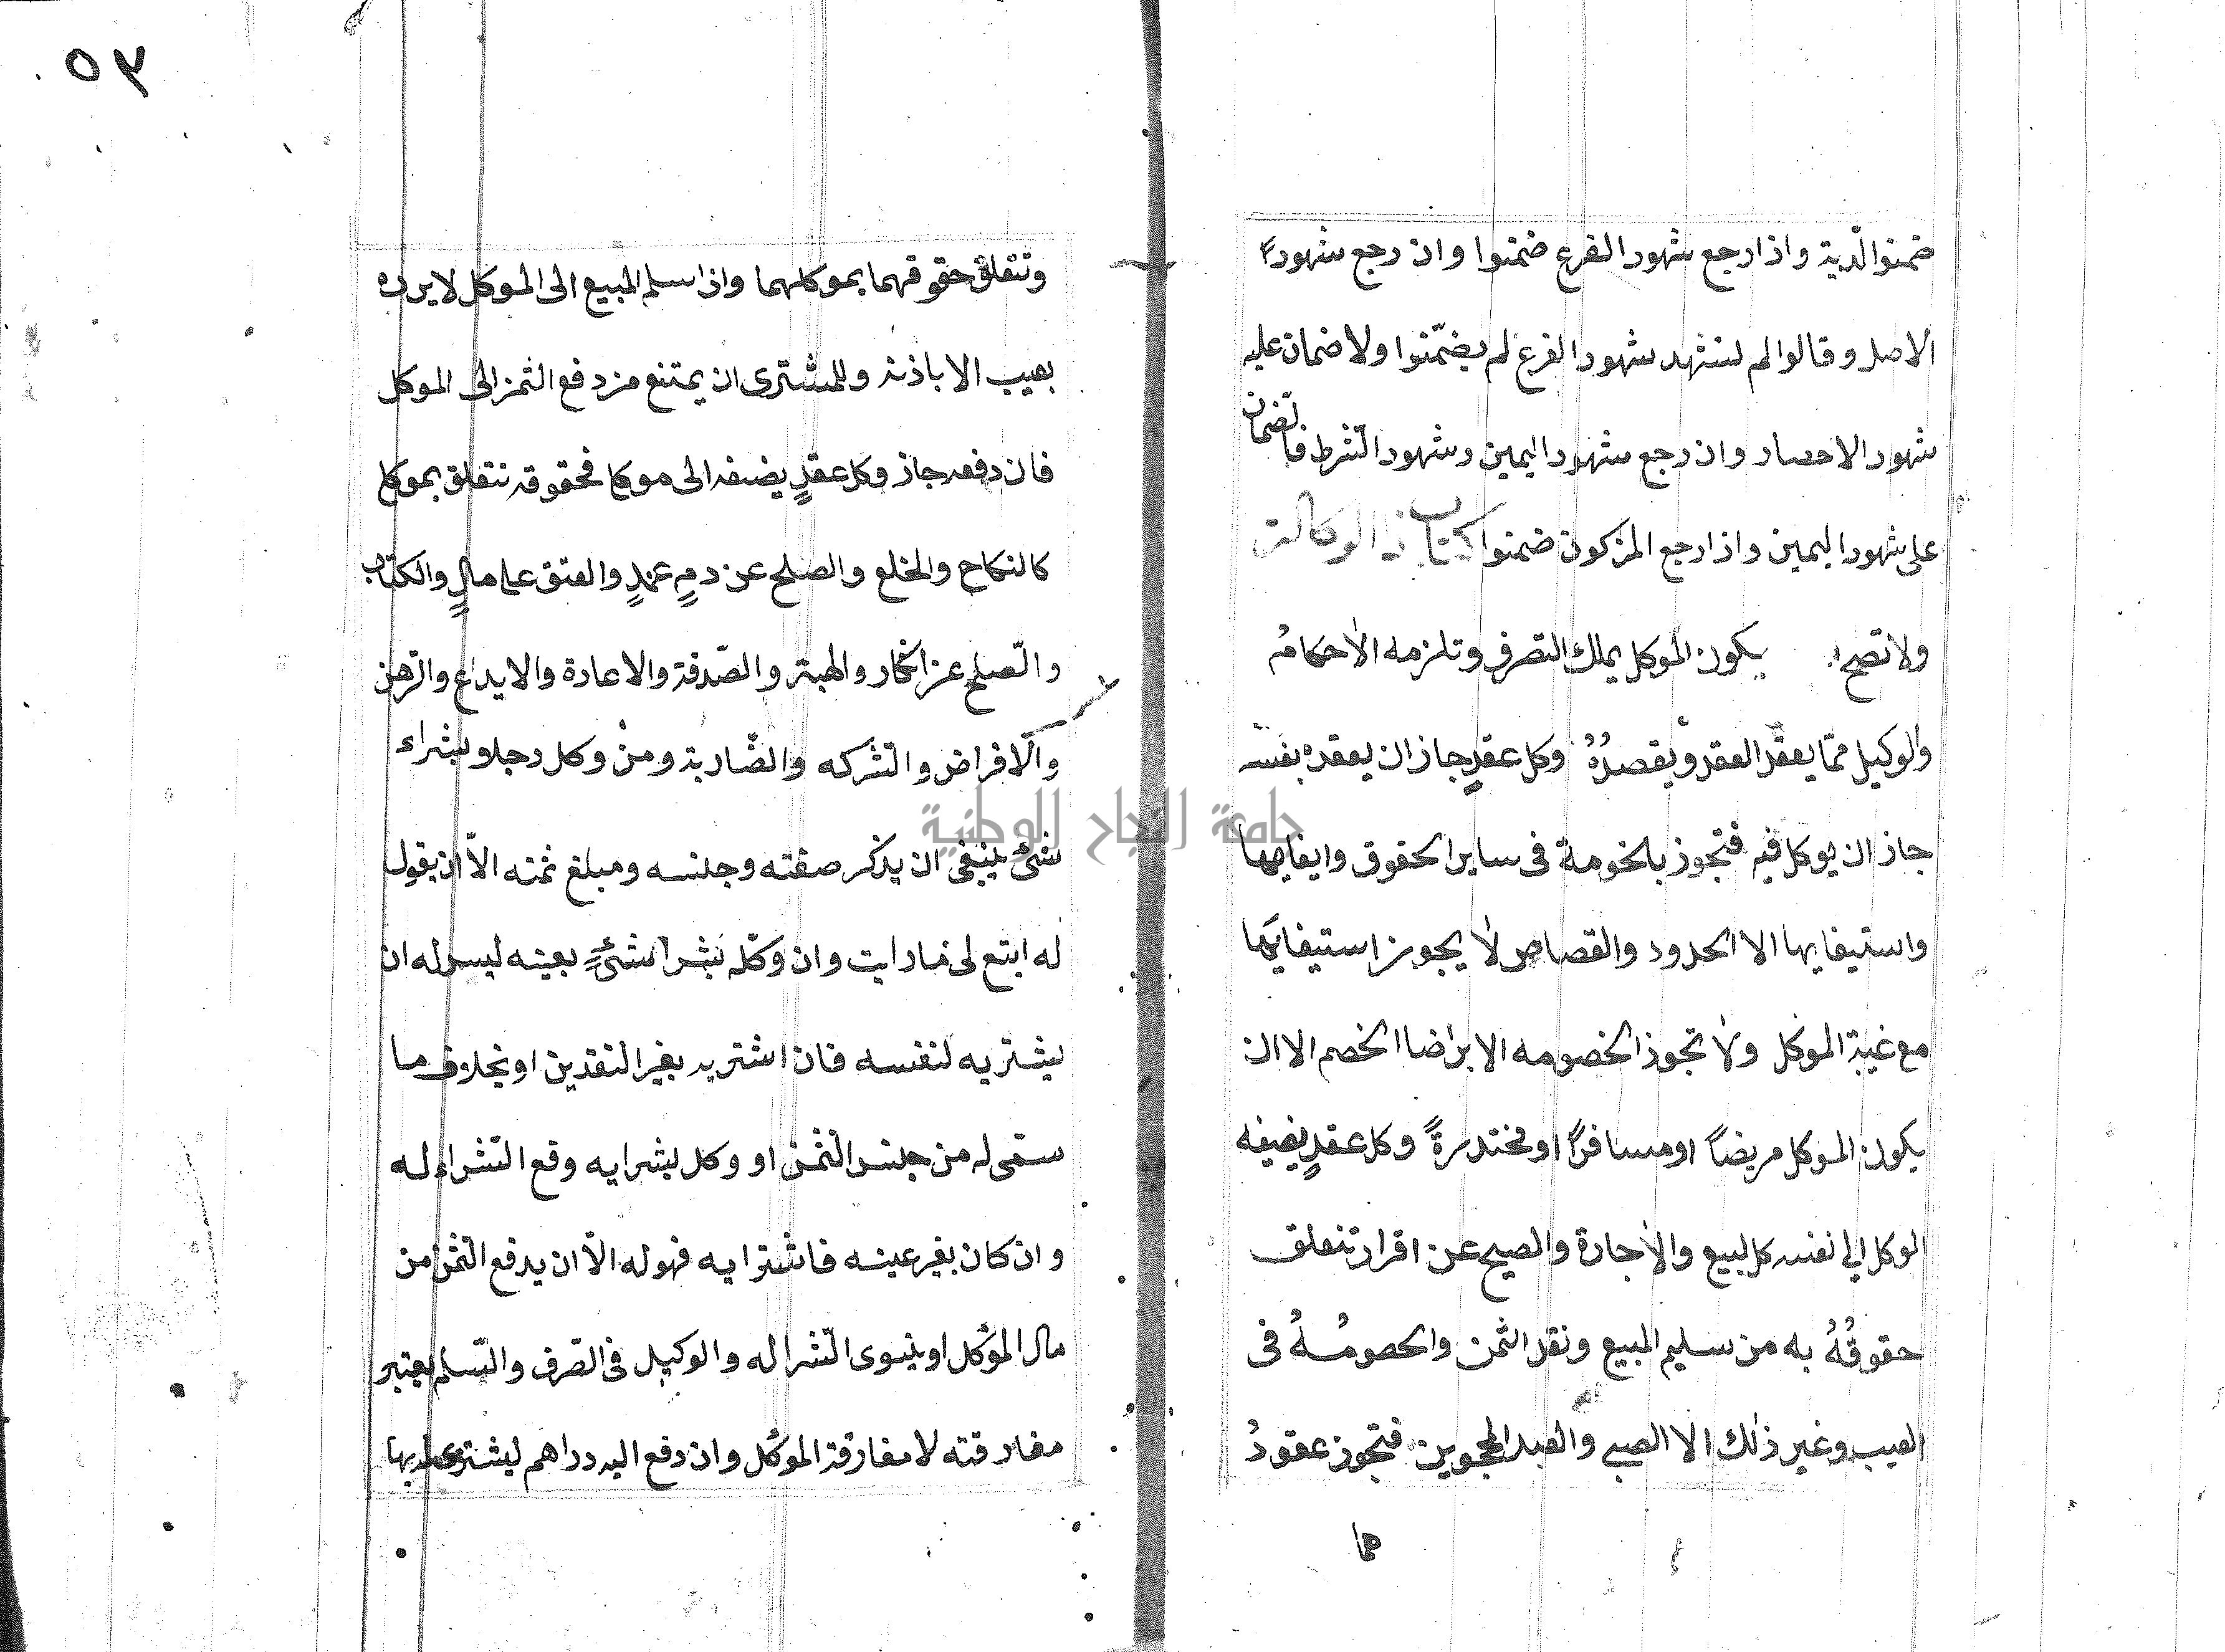 ٥٣
ضمنوا الدية واذا رجع شهود الفرع ضمنوا وان رجع شهودً
الاصل وقالوا لم نشهد شهود الفرع لم يضمّنوا ولا ضمان عليه
شهود الاحصار وان رجع شهود اليمين وشهود الشرط فالضمان
على شهود اليمين واذا رجع المزكون ضمنوا كتاب الوكالة
ولا تصح يكون الموكل يملك التصرف وتلزمه الاحكامُ
والوكيل ممّا يعقد العقد ويقصدُهُ وكل عقدٍ جاز ان يعقده بنفسه
جاز ان يوكل فيه فتجوز بالخومة فى ساير الحقوق وايفايها
واستيفايها الا الحدود والقصاص لا يجوز استيفايها
مع غيبة الموكل ولا تجوز الخصومه الا برضا الخصم الا ان
يكون الموكل مريضاً او مسافرًا او مختدرةً وكل عقدٍ يضيفه
الوكل الي نفسه كالبيع والاجارة والصيح عن اقرار تتعلق
حقوقُهُ به من سليم المبيع ونقد الثمن والحصومُهُ فى
العيب وغير ذلك الا الصبي والعبد المحجوبين فتجوز عقودُ
هما
وتتعلق حقوقهما بموكلهما واذا سلم المبيع الى الموكل لا يرده
بعيب الا باذنه وللمشترى ان يمتنع من دفع الثمن الى الموكل
فان دفعه جاز وكل عقدٍ يضفه الى موكله فحقوقه تتعلق بموكله
كالنكاح والخلع والصلح عن دمٍ عمدٍ والعتق على مالٍ والكتاب
والصلح عن انكار والهبة والصّدقة والاعادة والايداع والرهن
والاقراض والشركه والضّاربة ومنْ وكل رجلا بشراء
شئ ينبغى ان يذكر صفته وجنسه ومبلغ ثمنه الاّ ان يقول
له ابتع لى مارايت وان وكّله بشرا شئٍ بعينه ليس له ان
يشتريه لنفسه فان اشتريه بغير النقدين او بخلاف ما
سمّى له من جنس الثمن او وكل بشرايه وقع الشراء له
وان كان بغير عينه فاشترايه فهو له الاّ ان يدفع الثمن من
مال الموكل او ينوى الشرا له والوكيل فى الصرف والسّلم يعتبر
مفارقته لا مفارقة الموكل وان دفع اليه دراهم ليشترى بها
جامعة النجاح الوطنية